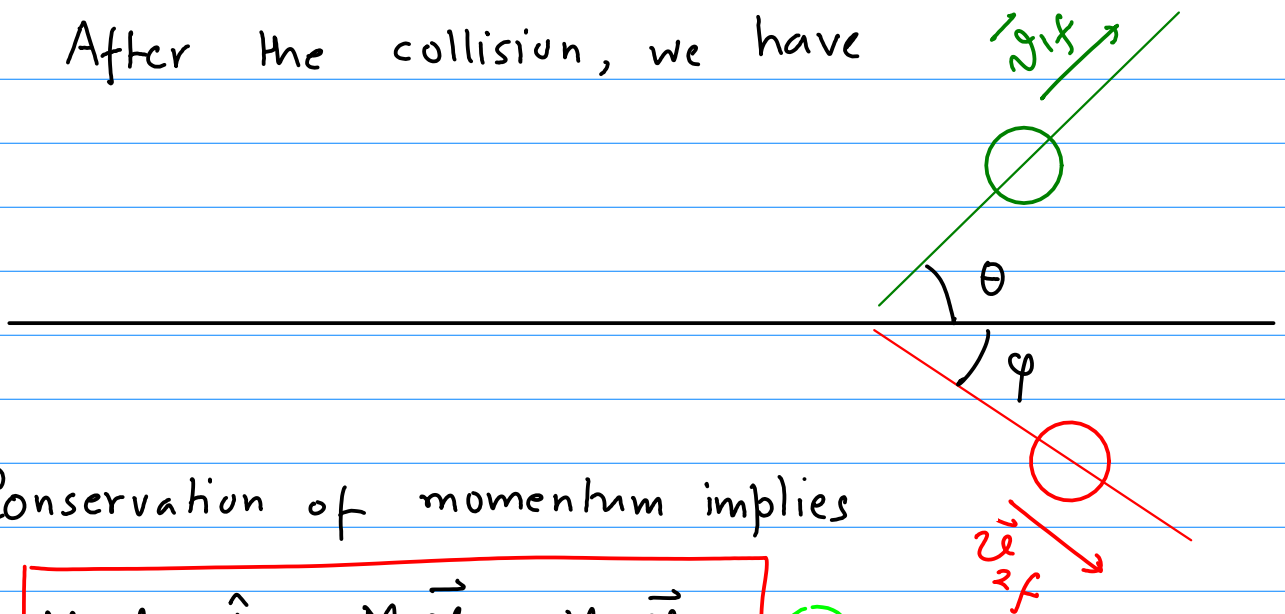 After the collision, we have
v⃗1f
θ
φ
Conservation of momentum implies
v⃗2f